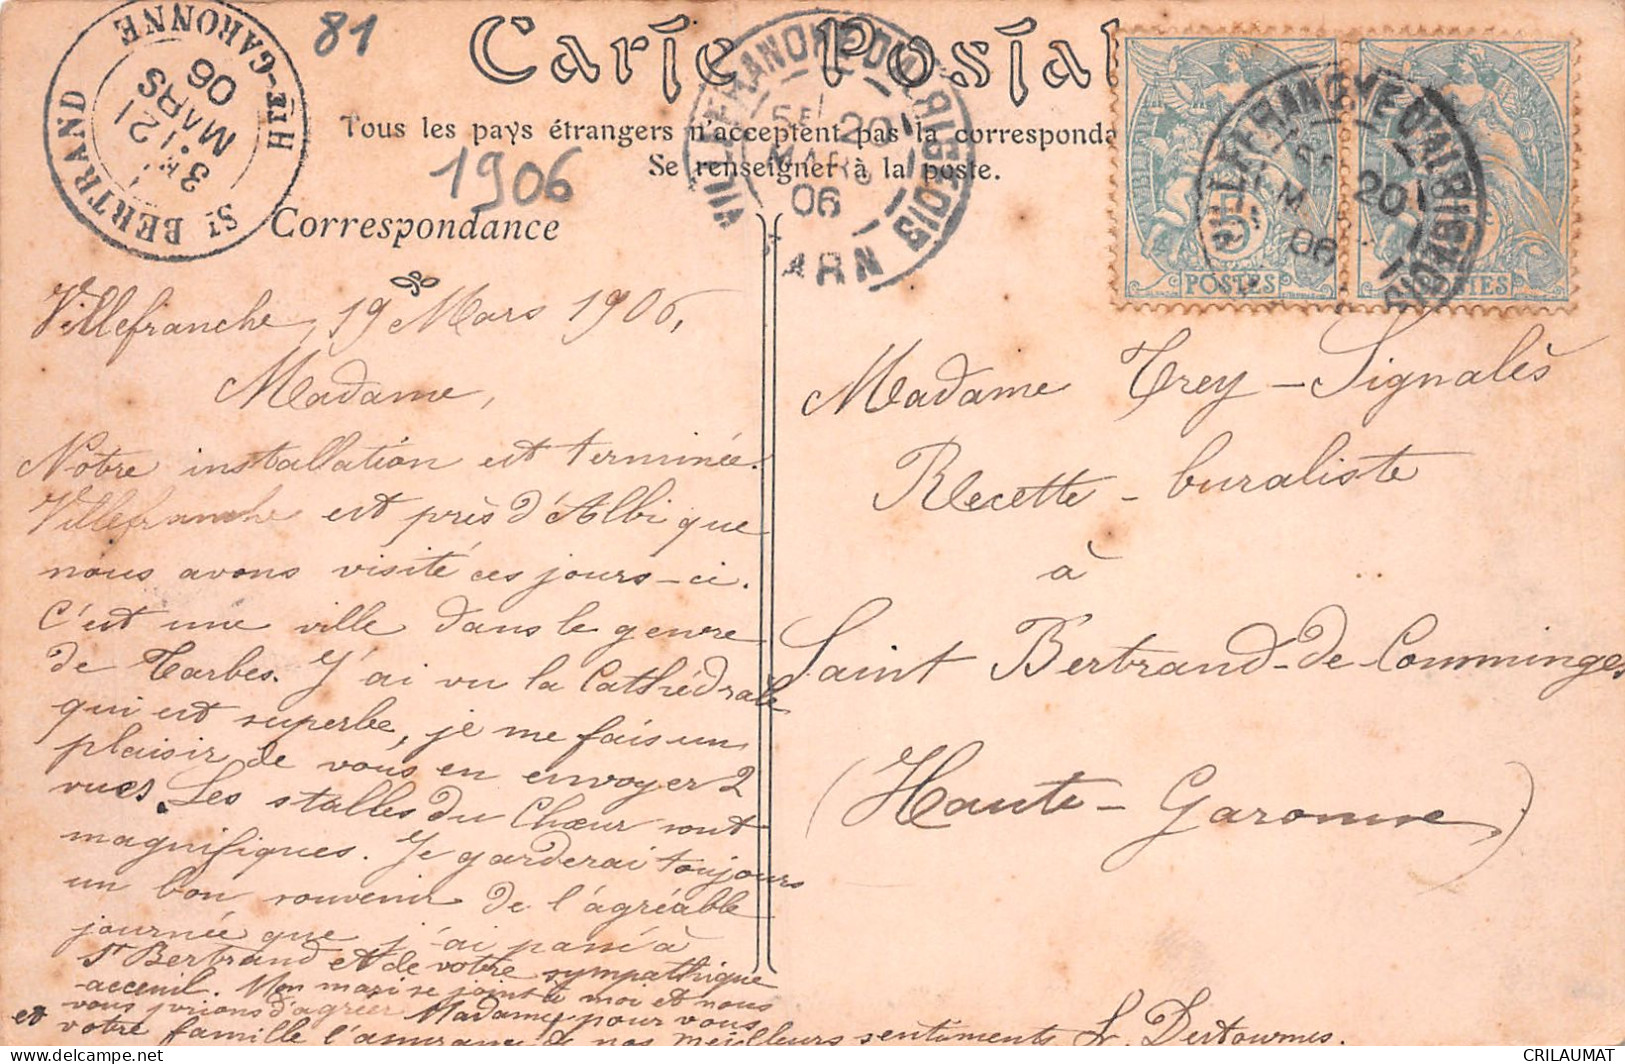 81
Carte Postal
Tous les pays étrangers n'acceptent pas la corresponda
Se renseigner à la poste.
1906
Correspondance
ST BERTRAND
HTE-GARONNE
3E
21
MARS
06
VILLEFRANCHE D'ALBIGEOIS
20
MARS
06
TARN
VILLEFRANCHE D'ALBIGEOIS
20
06
POSTES
POSTES
Villefranche, 19 Mars 1906,
Madame,
Notre installation est terminée.
Villefranche est près d'Albi que
nous avons visité ces jours-ci.
C'est une ville dans le genre
de Tarbes. J'ai vu la Cathédrale
qui est superbe, je me fais un
plaisir de vous en envoyer 2
vues. Les stalles du Chœur sont
magnifiques. Je garderai toujours
un bon souvenir de l'agréable
journée que j'ai passé à
St Bertrand et de votre sympathique
acceuil. Mon mari se joint à moi et nous
vous prions d'agréer Madame, pour vous
et votre famille l'assurance de nos meilleurs sentiments L. Destournes.
Madame Trey-Signalès
Recette-buraliste
à
Saint Bertrand-de-Comminges
(Haute-Garonne)
CRILAUMAT